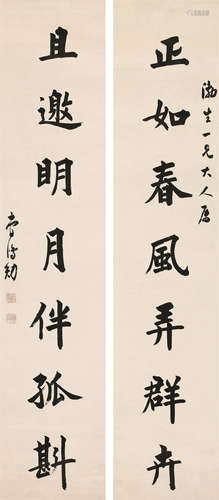 正如春風弄群卉
渤生一兄大人屬
且邀明月伴孤斟